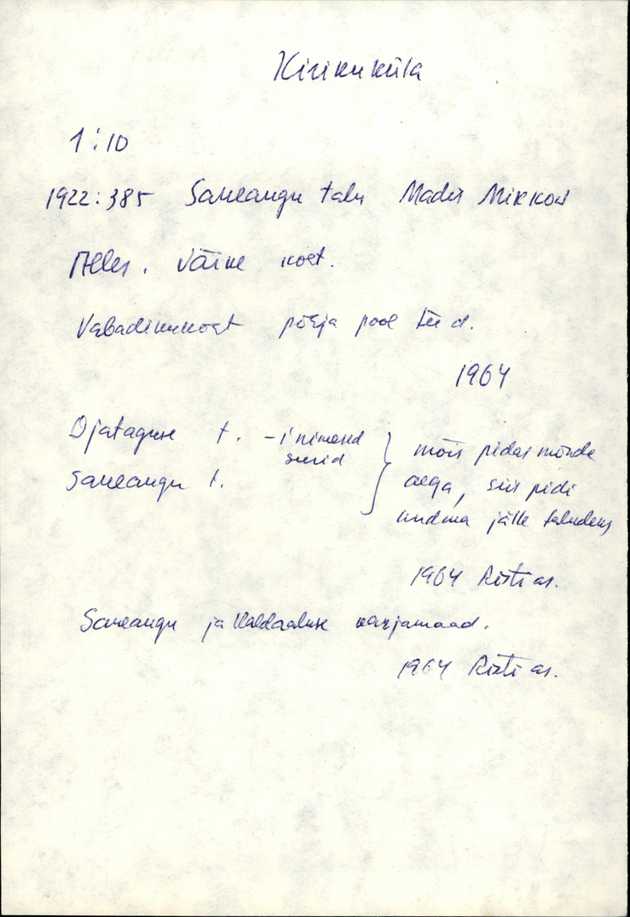 Kirikuküla
1:10
1922:385 Saueaugu talu Madis Mikkov
Alles. Väike koht.
Vabadikukoht põhja pool teed.
1964
Ojataguse t. – inimesed
surid
Saueaugu t.
mõis pidas mõnda
aega, siis pidi
andma jälle taludeks
1964 Risti as.
Saueaugu ja Valdaaluse karjamaad.
1964 Risti as.